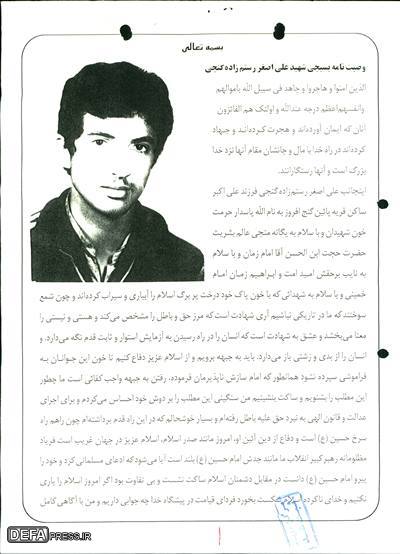 بسمه تعالی
وصیت نامه بسیجی شهید علی اصغر رستم زاده گنجی
الذین امنوا و هاجروا و جاهد فی سبیل الله باموالهم
وانفسهم اعظم درجه عندالله و اولئک هم الفائزون
آنان که ایمان آورده‌اند و هجرت کرده‌اند و جهاد
کرده‌اند در راه خدا با مال و جانشان مقام آنها نزد خدا
بزرگ است و آنها رستگارانند.
اینجانب علی اصغر رستم‌زاده گنجی فرزند علی اکبر
ساکن قریه پائین گنج افروز به نام الله پاسدار حرمت
خون شهیدان و با سلام به یگانه منجی عالم بشریت
حضرت حجت ابن الحسن آقا امام زمان و با سلام
به نایب برحقش امید امت و ابراهیم زمان امام
خمینی و با سلام به شهدائی که با خون پاک خود درخت پر برگ اسلام را آبیاری و سیراب کرده‌اند و چون شمع
سوختند که ما در تاریکی نباشیم آری شهادت است که مرز حق و باطل را مشخص می‌کند و هستی و نیستی را
معنا می‌بخشد و عشق به شهادت است که انسان را در راه رسیدن به آزمایش استوار و ثابت قدم نگه می‌دارد. و
انسان را از بدی و زشتی باز می‌دارد. باید به جبهه برویم و از اسلام عزیز دفاع کنیم تا خون این جوانان به
فراموشی سپرده نشود همانطور که امام سازش ناپذیرمان فرموده، رفتن به جبهه واجب کفائی است ما چطور
این مطلب را بشنویم و ساکت بنشینیم من سنگینی این مطلب را بر دوش خود احساس می‌کردم و برای اجرای
عدالت و قانون الهی به نبرد حق علیه باطل رفته‌ام و بسیار خوشحالم که در این راه قدم برداشته‌ام چون راهم راه
سرخ حسین (ع) است و دفاع از دین آئین او، امروز مانند صدر اسلام، اسلام عزیز در جهان غریب است فریاد
مظلومانه رهبر کبیر انقلاب ما مانند جدش امام حسین (ع) بلند است آیا می‌شود که ادعای مسلمانی کرد و خود را
پیرو امام حسین (ع) دانست در مقابل دشمنان اسلام ساکت نشست و بی تفاوت بود اگر امروز اسلام را یاری
نکنیم و خدای ناکرده اسلام شکست بخورد فردای قیامت در پیشگاه خدا چه جوابی داریم و من با آگاهی کامل
DEFAPRESS.IR